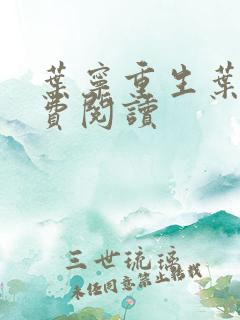 葉寧重生葉
費閱讀
三世琉璃
未經同意禁止轉載